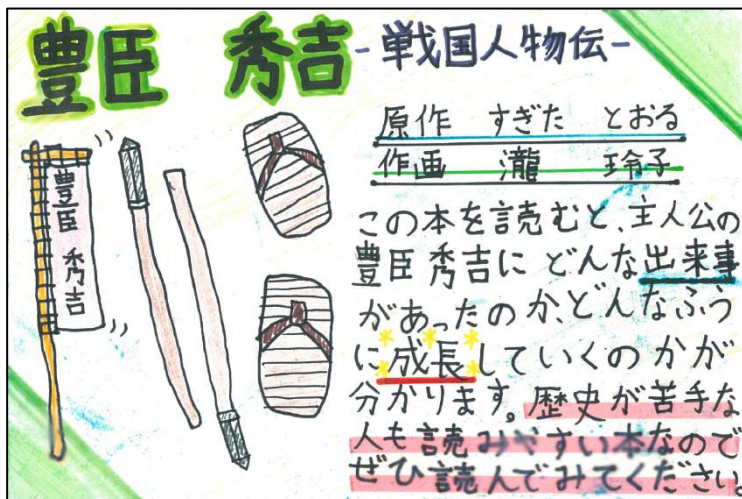 豊臣 秀吉 -戦国人物伝-
原作 すぎた とおる
作画 瀧 玲子
豊臣 秀吉
この本を読むと、主人公の
豊臣秀吉にどんな出来事
があったのか、どんなふう
に成長していくのかが
分かります。歴史が苦手な
人も読みやすい本なので
ぜひ読んでみてください。